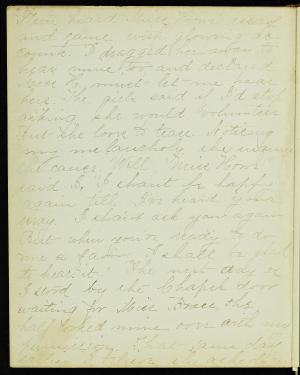 heard Miss
and came with glowing ac-
counts. I dragged her away to
hear mine, too, and declared
must let me hear
hers. The girls said if I'd stop
asking, she would volunteer
But she loves to tease. Noticing
my melancholy, she
the cause. "Well, Miss Howe"
said I, "I shan't be happy
again till I've heard your
way. I shan't ask you again
But when you're ready to do
me a favor, I shall be glad
to hear it." The next day as
I stood by the Chapel door
waiting for Miss
half looked mine over with my
permission. That same day